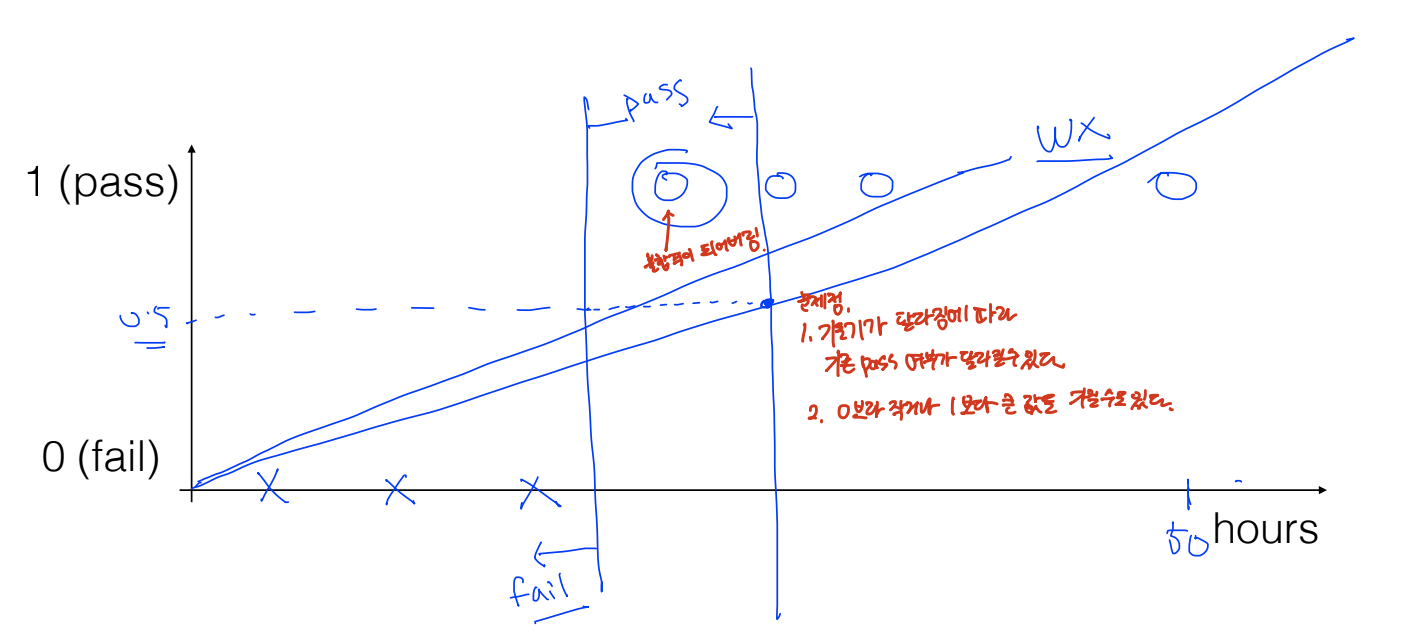 pass
WX
1 (pass)
불합격이 되어버림.
0.5
문제점.
1. 기울기가 달라짐에 따라
기존 pass 여부가 달라질수있다.
2. 0보다 작거나 1보다 큰 값을 가질수도있다.
0 (fail)
50
hours
fail